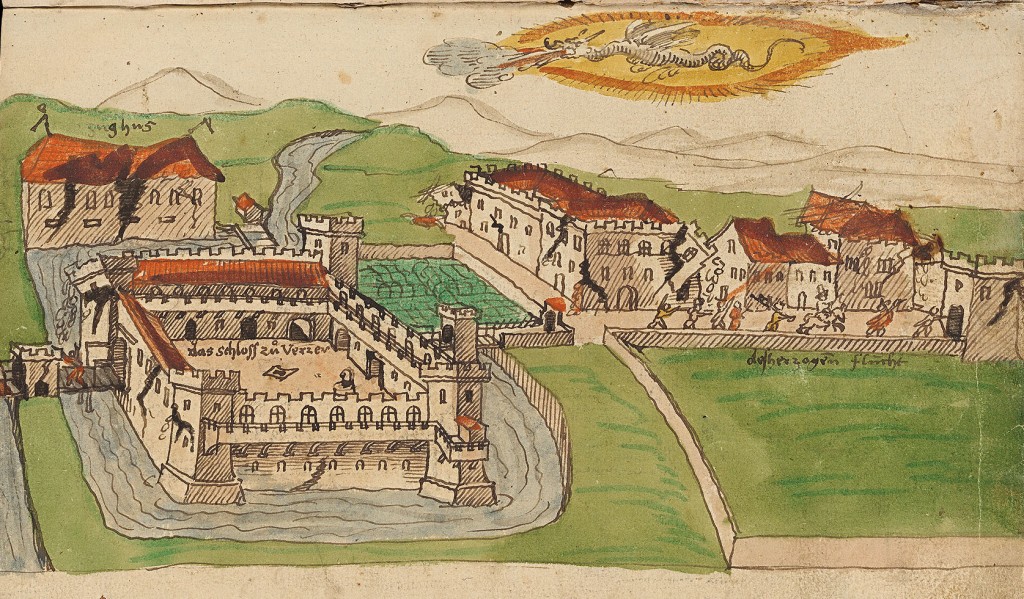 zughus
das schloſſ zů Verrer
deſ herzogen flucht